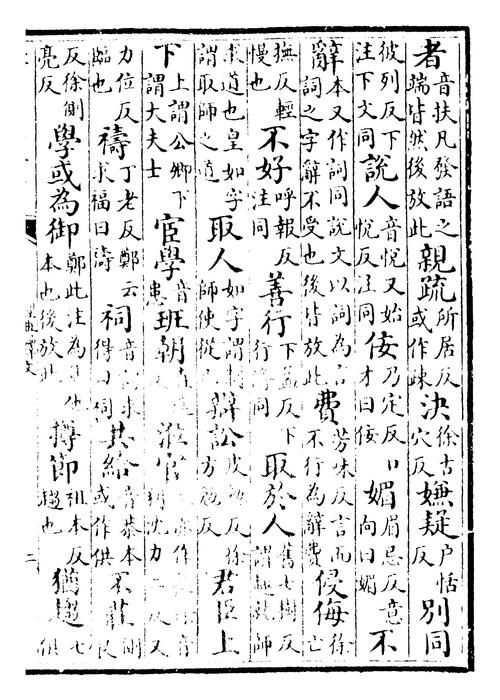 者音扶凡發語之端皆然後放此親疏所居反或作疎決徐古穴反嫌疑户恬反別同
彼列反下注下文同說人音悅又始悅反注同佞乃定反口才曰佞媚眉忌反意向曰媚不
辭本又作詞同說文以詞為言詞之字辭不受也後皆放此費芳味反言而不行為辭費侵侮徐亡
撫反輕慢也不好呼報反注同善行下孟反下行同取於人舊七樹反謂趣就師
求道也皇如字謂取師之道取人如字謂制師使從辯訟皮勉反徐方勉反君臣上
下上謂公卿下謂大夫士宦學音患班朝直涖官本亦作音利沈力二反又
力位反臨也禱丁老反鄭云求福曰禱祠音求得曰祠共給音恭本或作供不莊側良
反徐側亮反學或為御鄭此注為見他本也後放此撙節祖本反趨也猶趨七俱
二